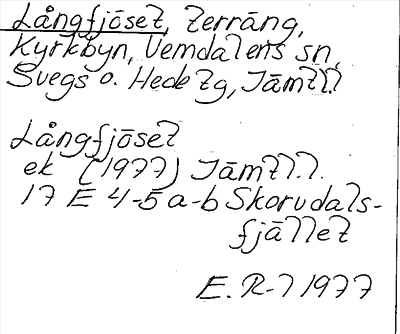 Långfjöset, Terräng,
Kyrkbyn, Vemdalens sn,
Svegs o. Hede tg, Jämtl.l
Långfjöset
ek (1977) Jämtl.l.
17 E 4-5 a-b Skorvdals-
fjället
E. R-l 1977